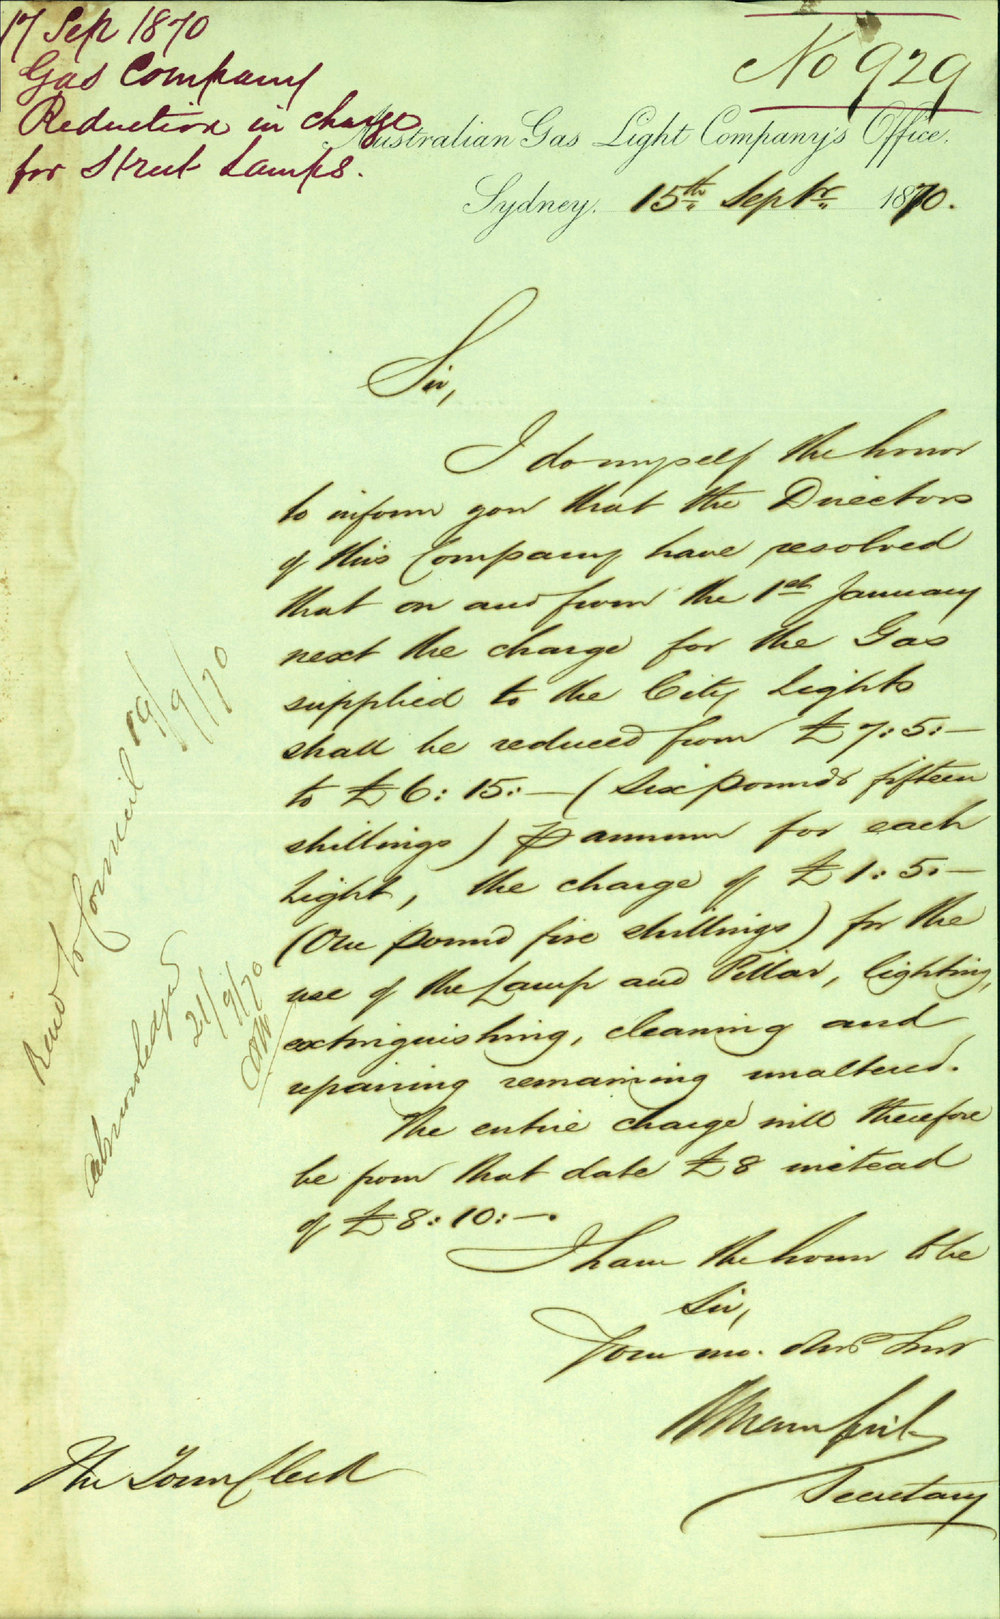 17 Sep 1870
Gas Company
Reduction in charge
for Street Lamps.
No 929
Australian Gas Light Company's Office.
Sydney. 15th Septr 1870.
Sir,
I do myself the honor
to inform you that the Directors
of this Company have resolved
that on and from the 1st January
next the charge for the Gas
supplied to the City Lights
shall be reduced from £7:5:—
to £6:15:— (Six pounds fifteen
shillings) ⅌ annum for each
Light, the charge of £1:5:—
(One pound five shillings) for the
use of the Lamp and Pillar, lighting,
extinguishing, cleaning and
repairing remaining unaltered.
The entire charge will therefore
be from that date £8 instead
of £8:10:—.
I have the honor to be
Sir,
Your mo. Obt Servt
Secretary
The Town Clerk
Read to Council 19/9/70
Acknowledged
21/9/70